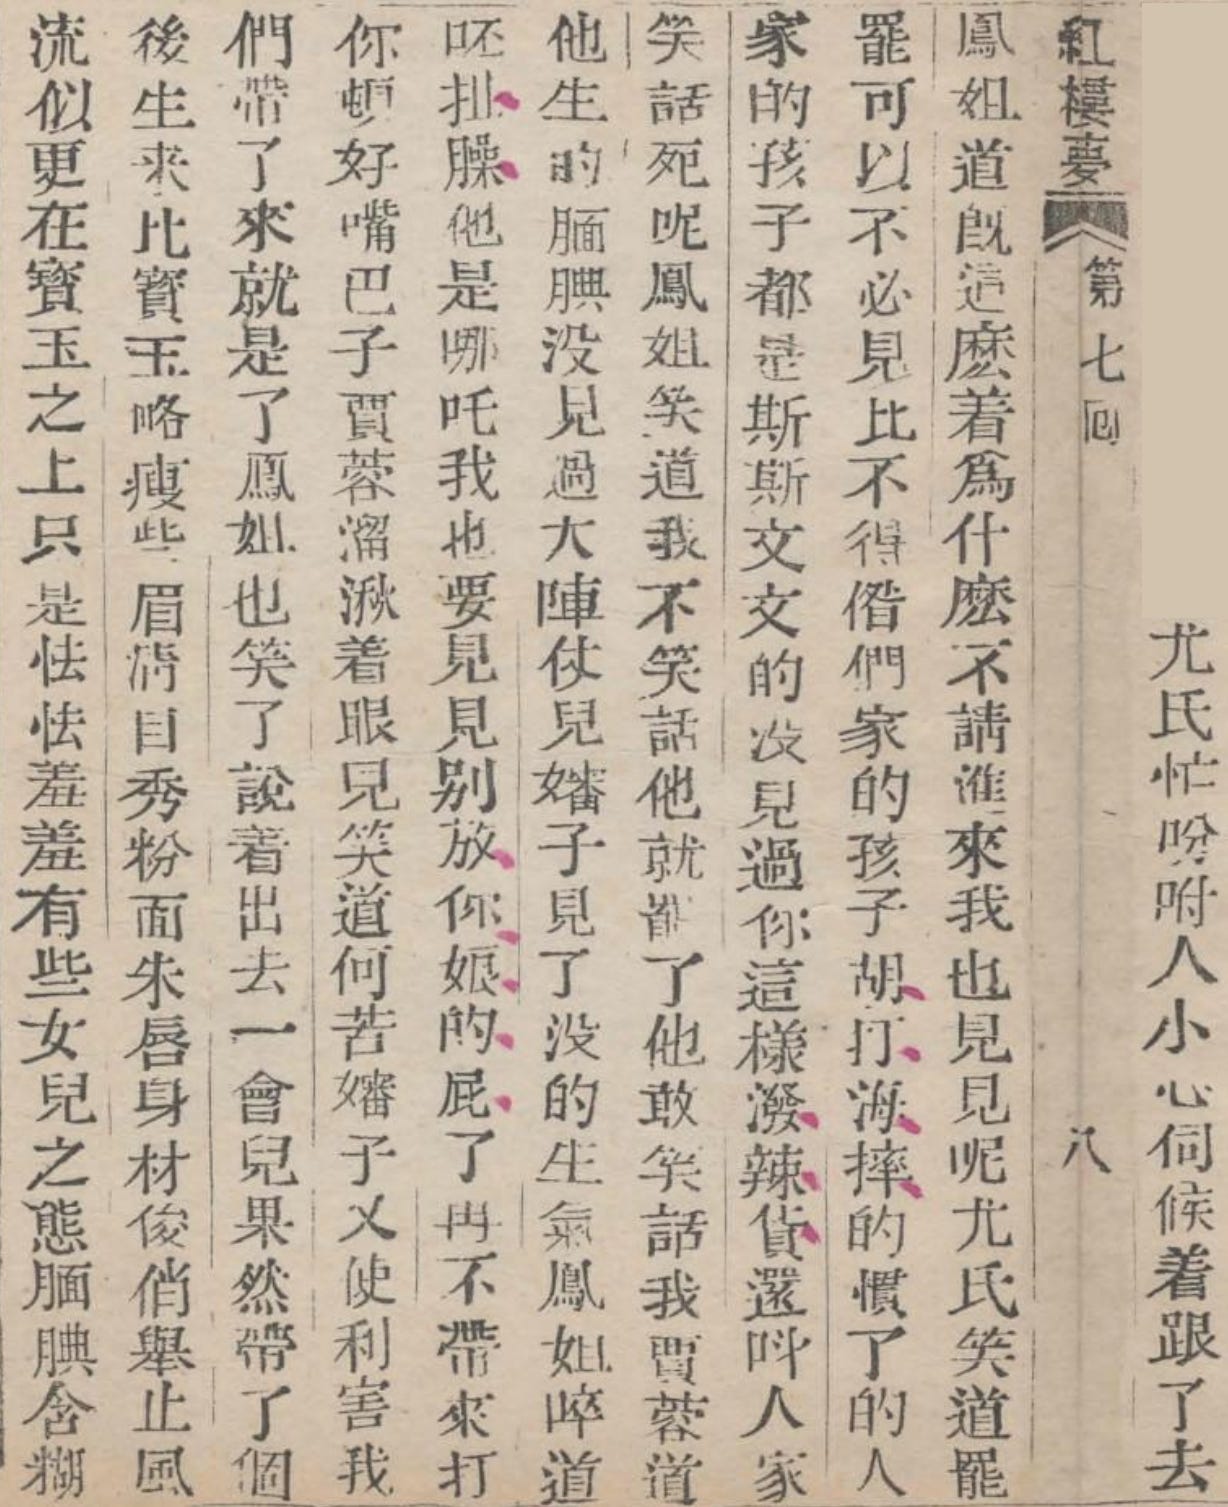 尤氏忙吩咐人小心伺候着跟了去
紅樓夢 第七回 八
鳳姐道既這麽着爲什麽不請進來我也見見呢尤氏笑道罷
罷可以不必見比不得偺們家的孩子胡打海摔的慣了的人
家的孩子都是斯斯文文的没見過你這樣潑辣貨還呌人家
笑話死呢鳳姐笑道我不笑話他就罷了他敢笑話我賈蓉道
他生的腼腆没見過大陣仗兒嬸子見了没的生氣鳳姐啐道
呸扯臊他是哪吒我也要見見别放你娘的屁了再不帶來打
你頓好嘴巴子賈蓉溜湫着眼兒笑道何苦嬸子又使利害我
們帶了來就是了鳳姐也笑了說着出去一會兒果然帶了個
後生来比寳玉略瘦些眉清目秀粉面朱唇身材俊俏舉止風
流似更在寳玉之上只是怯怯羞羞有些女兒之態腼腆含糊